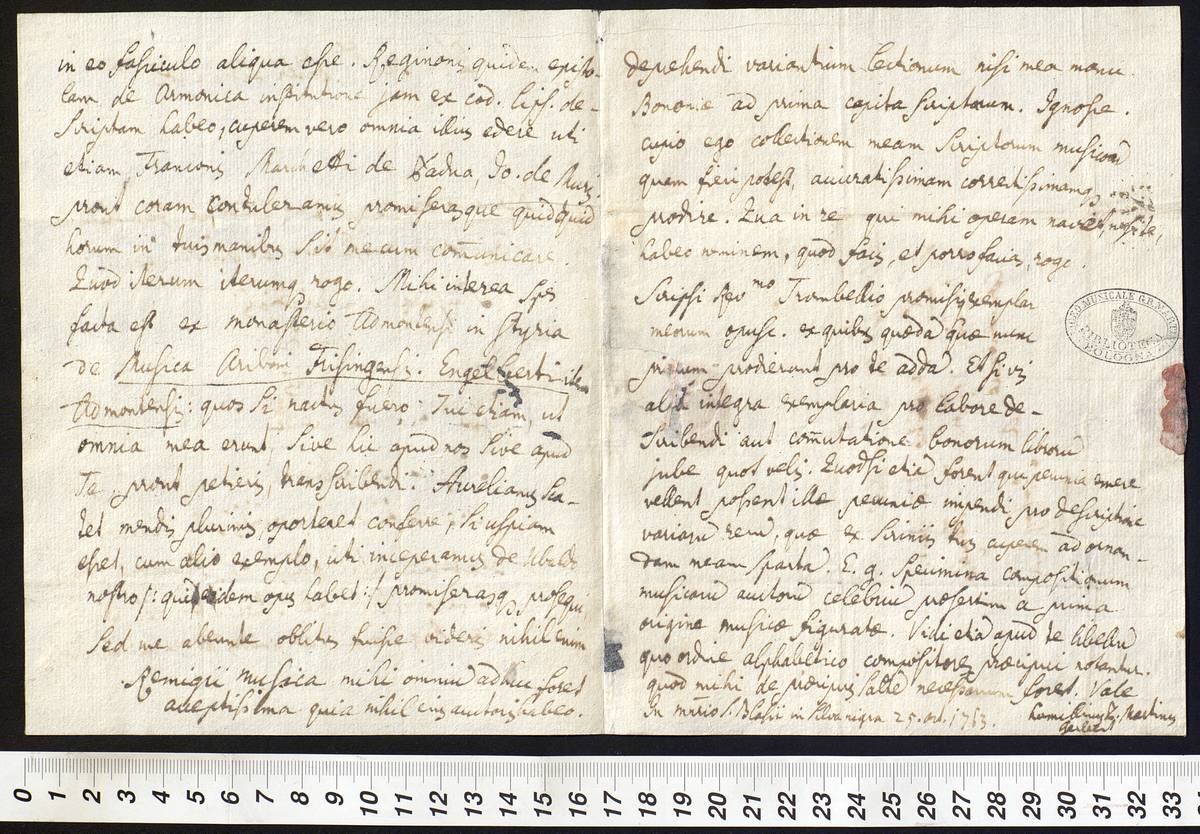 in eo fasciculo aliqua esse. Reginonis quidem episto-
lam de Armonica institutione jam ex cod. Lips. de-
scriptam habeo, cuperem vero omnia illius edere uti
etiam Franconis Marchetti de Padua, Jo. de Muris
prout coram contuleramus promiserasque quidquid
horum in tuis manibus sit mecum com̃unicare.
Quod iterum iterumq rogo. Mihi interea spes
facta est ex monasterio Admontensi in Styria
de Musica Aribonis Frisingensis. Engelberti item
Admontensis: quos si nactus fuero, Tui etiam, ut
omnia mea erunt, sive hic apud nos sive apud
Te, prout petieris, transscribendi. Aurelianus sca-
tet mendis plurimis, oporteret conferre, si uspiam
esset, cum alio exemplo, uti inceperamus de Ubaldo
nostro /: qui eidem opus habet :/ promiserasq prosequi
sed me abeunte oblitus fuisse videris nihil enim
Remigii musica mihi omniũ adhuc foret
acceptissima quia nihil eius auctoris habeo.
deprehendi variantium lectionum nisi mea manu
Bononiæ ad prima capita scriptorum. Ignosce.
cupio ego collectionem meam scriptorum musicorũ
quam fieri potest, accuratissimam correctissimamq
prodire. Qua in re qui mihi operam navet,
habeo neminem, quod facis, et porro facias, rogo.
Scripsi Revmo Trombellio promisi exemplar
meorum opusc. ex quibus quædã quæ nunc
primum prodierunt pro te addã. Et si vis
alia integra exemplaria pro labore de-
scribendi aut com̃utatione bonorum librorũ
jube quot velis. Quodsi etiã forent qui pecunia emere
vellent possent illæ pecuniæ impendi pro descriptione
variarũ rerũ, quæ ex scriniis tuis cuperem ad ornan-
dam meam spartã. E. g. specimina compositionum
musicarũ auctorũ celebriũ præsertim a prima
origine musicæ figuratæ. Vidi etiã apud te libellũ
quo ordine alphabetico compositores præcipui notantur.
quod mihi de præcipuis saltẽ necessarium foret. Vale
In mnrio S. Blasii in Silva nigra 25. oct. 1763. Martinus
Gerbert
MUSICALE G.B. MARTINI
BIBLIOTECA
BOLOGNA
0 1 2 3 4 5 6 7 8 9 10 11 12 13 14 15 16 17 18 19 20 21 22 23 24 25 26 27 28 29 30 31 32 33